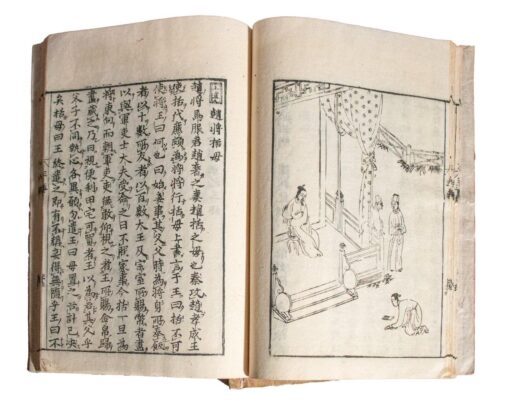 趙將括母
趙將馬服君趙奢之妻趙括之母也秦攻趙孝成王
使括代廉頗為將將行括母上書言于王曰括不可
使將王曰何也曰始妾事其父父時為將身所奉飯
者以十數所友者以百數大王及宗室所賜幣者盡
以與軍吏士大夫受命之日不問家事今括一旦為
將東向而朝軍吏吏無敢仰視之者王所賜金帛歸
盡藏之乃日視便利田宅可買者王以為若其父乎
父子不同執心各異願勿遣王曰母置之吾計已決
矣括母曰王終遣之即有不稱妾得無隨乎王曰不